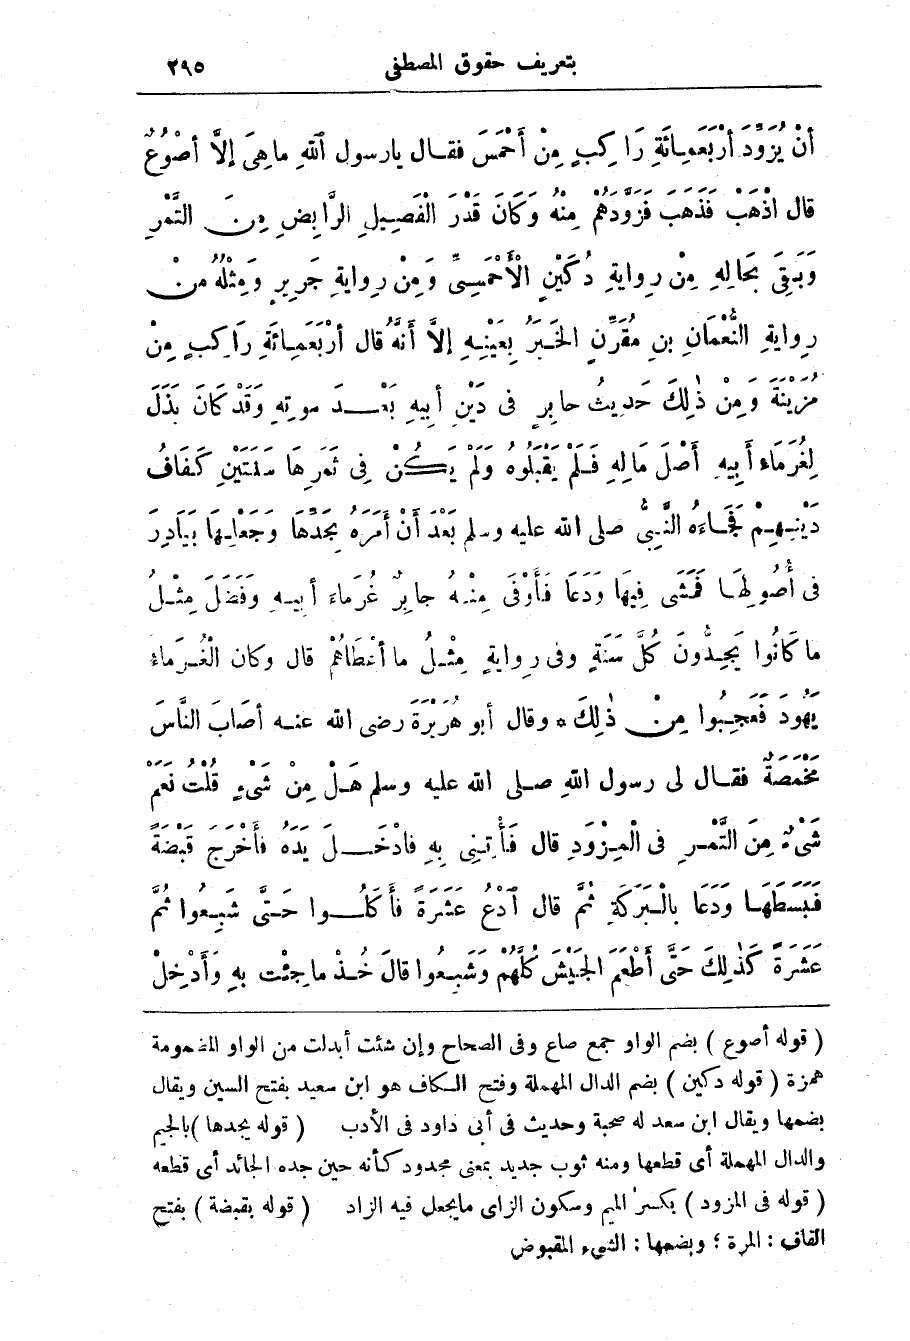 بتعريف حقوق المصطفى ٢٩٥
أنْ يُزَوِّدَ أرْبَعَمِائَةِ رَاكِبٍ مِنْ أَحْمَسَ فقـال يارسول ٱللهِ ماهِىَ إلاَّ أصْوُعٌ
قال اذْهَبْ فَذَهَبَ فَزَوَّدَهُمْ مِنْهُ وَكَانَ قَدْرَ الْفَصِيلِ الرَّابِضِ مِنَ التَّمْرِ
وَبَقِىَ بِحَالِهِ مِنْ رِوايةِ دُكَيْنٍ الْأَحْمَسِىِّ وَمِنْ رِوايةِ جَرِيرٍ وَمِثْلُهُ مِنْ
رِوايةِ النُّعْمَانِ بنِ مُقَرِّنٍ الخَبَرُ بِعَيْنِهِ إلاَّ أنَّهُ قال أرْبَعَمِائَةِ رَاكِبٍ مِنْ
مُزَيْنَةَ وَمِنْ ذٰلِكَ حَدِيثُ جابِرٍ فى دَيْنِ أبِيهِ بَعْـدَ موتِهِ وَقَدْ كَانَ بَذَلَ
لِغُرَمَاءِ أَبِيهِ أَصْلَ مَالِهِ فَلَمْ يَقْبَلُوهُ وَلَمْ يَكُنْ فِى ثَمَرِهَا سَنَتَيْنِ كَفَافُ
دَيْنِهِمْ فَجَاءَهُ النَّبِىُّ صلى الله عليه وسلم بَعْدَ أَنْ أَمَرَهُ بِجَدِّهَا وَجَعْلِهَا بَيَادِرَ
فى أُصُولِهَا فَمَشَى فِيهَا وَدَعَا فَأَوْفَى مِنْهُ جابِرٌ غُرَمَاءَ أبيهِ وَفَضَلَ مِثْلُ
ما كَانُوا يَجِدُّونَ كُلَّ سَنَةٍ وفى رِوايةٍ مِثْلُ ما أعْطَاهُمْ قال وكان الْغُرَمَاءُ
يَهُودَ فَعَجِبُوا مِنْ ذٰلِكَ * وقال أبو هُرَيْرَةَ رضى الله عنه أصَابَ النَّاسَ
مَخْمَصَةٌ فقـال لى رسول اللهِ صلى الله عليه وسلم هَلْ مِنْ شَىْءٍ قُلْتُ نَعَمْ
شَىْءٌ مِنَ التَّمْرِ فى الْمِزْوَدِ قال فَأْتِنِى بِهِ فَادْخَـلَ يَدَهُ فأَخْرَجَ قَبْضَةً
فَبَسَطَهَا وَدَعَا بِالْبَرَكَةِ ثُمَّ قال ٱدْعُ عَشَرَةً فأَكَلُـوا حَتَّى شَبِعُوا ثُمَّ
عَشَرَةً كَذٰلِكَ حَتَّى أَطْعَمَ الجَيْشَ كُلَّهُمْ وَشَبِعُوا قالَ خُذْ ماجِئْت بِهِ وَأَدْخِلْ
( قوله أصوع ) بضم الواو جمع صاع وفى الصحاح وإن شئت أبدلت من الواو المضمومة
همزة ( قوله دكين ) بضم الدال المهملة وفتح الكاف هو ابن سعيد بفتح السين ويقال
بضمها ويقال ابن سعد له صحبة وحديث فى أبى داود فى الأدب ( قوله بجدها )بالجيم
والدال المهملة أى قطعها ومنه ثوب جديد بمعنى مجدود كأنه حين جده الجائد أى قطعه
( قوله فى المزود ) بكسر الميم وسكون الزاى مايجعل فيه الزاد ( قوله بقبضة ) بفتح
القاف : المرة ؛ وبضمها : الشىء المقبوض